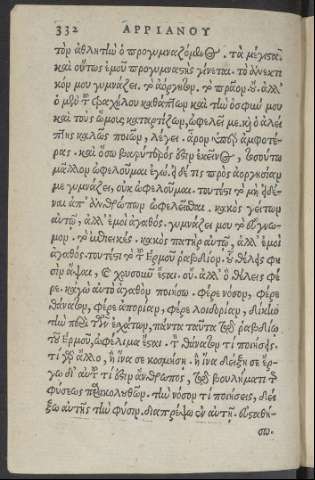 332 ΑΡΡΙΑΝΟΥ
τὸν ἀθλητὴν ὁ προγυμναζόμενος. τὰ μέγιστα.
καὶ οὗτος ἐμοῦ προγυμναστὴς γίνεται. τὸ ἀνεκτι
κόν μου γυμνάζει. τὸ ἀόργητον. τὸ πρᾶον. οὔ. ἀλλ'
ὁ μὲν τοῦ τραχήλου καθάπτων καὶ τὴν ὀσφύν μου
καὶ τοὺς ὤμους καταρτίζων, ὠφελεῖ με. καὶ ὁ ἀλεί
πτης καλῶς ποιῶν, λέγει. ἆρον ὑπὲρ ἀμφοτέ
ρας. καὶ ὅσῳ βαρύτερός ἐστιν ἐκεῖνος, τοσούτῳ
μᾶλλον ὠφελοῦμαι ἐγώ. εἰ δέ τις πρὸς ἀοργησίαν
με γυμνάζει, οὐκ ὠφελοῦμαι. τουτέστι τὸ μὴ εἰδέ-
ναι ἀπ' ἀνθρώπων ὠφελεῖσθαι. κακὸς γείτων
αὑτῷ, ἀλλ' ἐμοὶ ἀγαθός. γυμνάζει μου τὸ εὔγνω-
μον. τὸ ἐπιεικές. κακὸς πατὴρ αὑτῷ, ἀλλ' ἐμοὶ
ἀγαθός. τουτέστι τὸ τοῦ Ἑρμοῦ ῥαβδίον. οὗ θέλεις φη
σὶν ἅψαι, καὶ χρυσοῦν ἔσται. οὔ. ἀλλ' ὃ θέλεις φέ
ρε. κἀγὼ αὐτὸ ἀγαθὸν ποιήσω. φέρε νόσον, φέρε
θάνατον, φέρε ἀπορίαν, φέρε λοιδορίαν, δίκην
τὴν περὶ τῶν ἐσχάτων, πάντα ταῦτα τῷ ῥαβδίῳ
τοῦ Ἑρμοῦ, ὠφέλιμα ἔσται. τὸν θάνατον τί ποιήσεις.
τί γὰρ ἄλλο, ἢ ἵνα σε κοσμήσῃ. ἢ ἵνα δείξῃ σε ἔρ-
γῳ δι' αὐτοῦ τί ἐστιν ἄνθρωπος, τῷ βουλήματι τῆς
φύσεως παρακολουθῶν. τὴν νόσον τί ποιήσεις, δεί
ξω αὐτῆς τὴν φύσιν. διαπρέψω ἐν αὐτῇ. εὐσταθή-
σω.